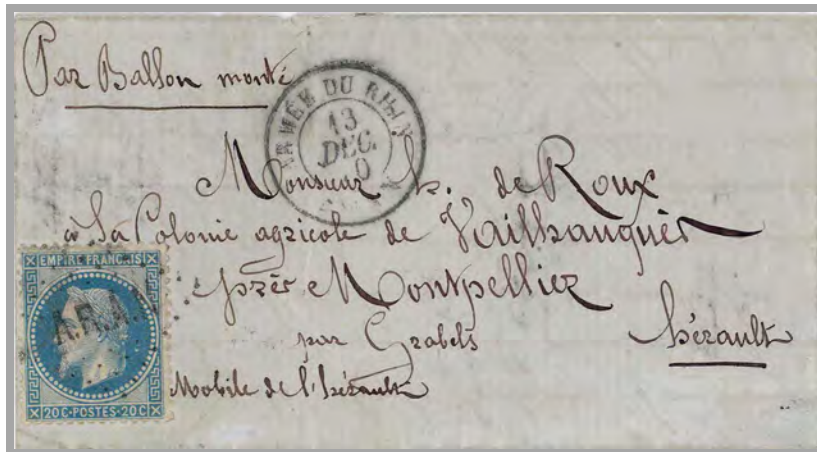 Par Ballon monté
ARMÉE DU RHIN
13
DEC.
0
Monsieur h. de Roux
à la Colonie agricole de Vailhauquès
près Montpellier
par Grabels
hérault
Mobile de l'hérault
EMPIRE FRANÇAIS
20C·POSTES·20C